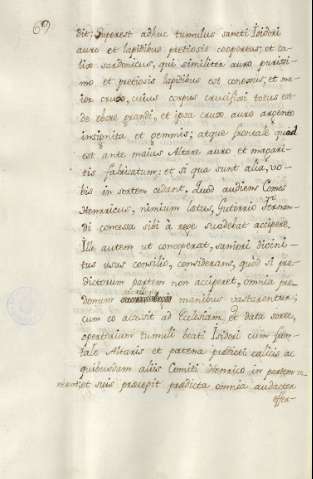 69
dit; superest adhuc tumulus sancti Isidori
auro et lapidibus pretiosis coopertus, et ca-
lix sardonicus, qui similiter auro purissi-
mo et pretiosis lapidibus est conexus, et ma-
ior crux, cuius corpus crucifixi totus est
de ebore grandi, et ipsa crux auro argento
insignita et gemmis; atque frontale quod
est ante maius Altare auro et margari-
tis fabricatum; et si qua sunt alia, vo-
bis in sortem cedant. Quod audiens Comes
Henrricus, nimium lætus, Guterrio Fernan-
di concessa sibi à rege suadebat accipere.
Ille autem ut conceperat, saniori divini-
tus usus consilio, considerans, quod si præ-
dictorum partem non acciperet, omnia præ-
donum manibus vastarentur;
cum eo accesit ad Ecclesiam, et data sorte,
opertorium tumuli beati Isidori cum fron-
tale Altaris et patena prædicti calicis ac
quibusdam aliis Comiti Henrrico in partem
et suis præcepit prædicta omnia audacter
offer-